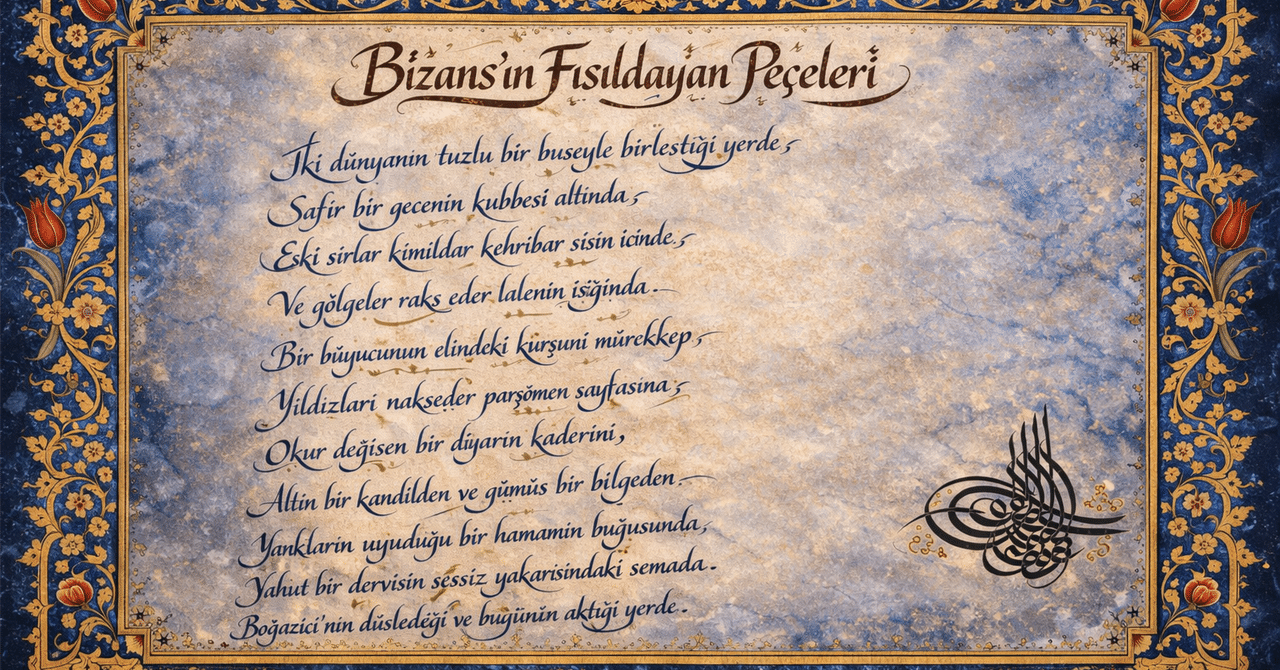 Bizans'ın Fısıldayan Peçeleri
İki dünyanin tuzlu bir buseyle birlestiği yerde,
Safir bir gecenin kubbesi altinda,
Eski sirlar kimildar kehribar sisin icinde.,
Ve gölgeler raks eder lalenin işiğinda.
Bir büyucunun elindeki kürşuni mürekkep,
Yildizlari nakseder parşömen sayfasina,
Okur değisen bir diyarin kaderini,
Altin bir kandilden ve gümüs bir bilgeden.
Yanklarin uyuduğu bir hamamin buğusunda,
Yahut bir dervisin sessiz yakarisindaki semada.
Boğazici'nin düslediği ve bugünin aktiği yerde.